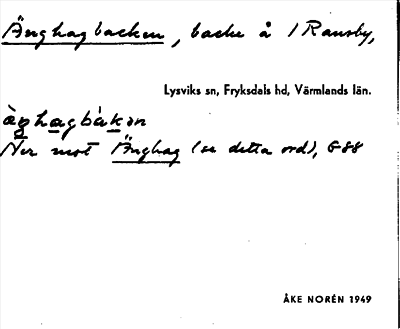 Änghagbacken, backe å 1 Ransby,
Lysviks sn, Fryksdals hd, Värmlands län.
àŋhagbàkən
Ner mot Änghag (se detta ord), G 88
ÅKE NORÉN 1949